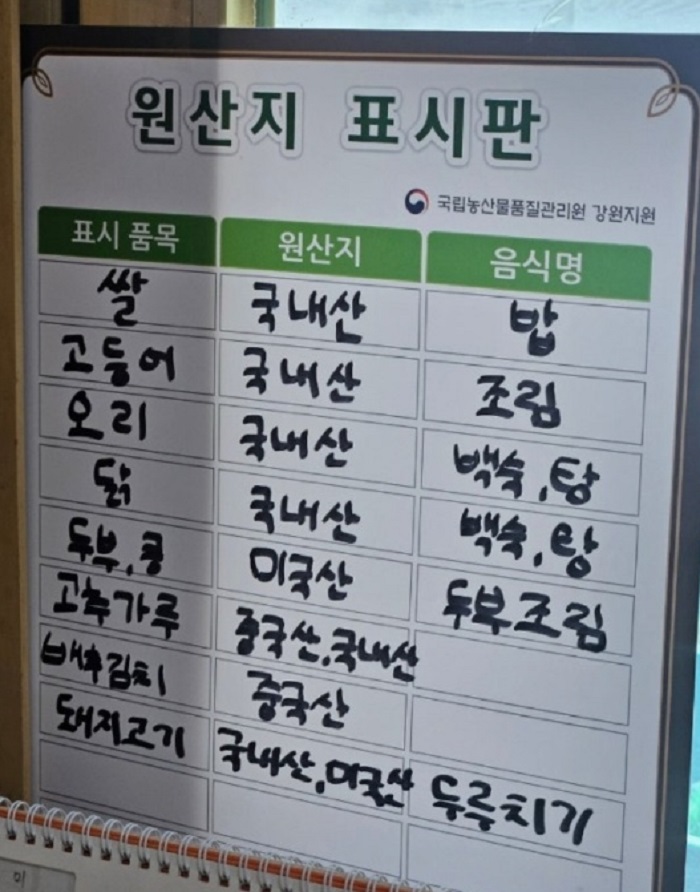 원산지 표시판
국립농산물품질관리원 강원지원
표시 품목 원산지 음식명
쌀 국내산 밥
고등어 국내산 조림
오리 국내산 백숙,탕
닭 국내산 백숙,탕
두부,콩 미국산 두부조림
고추가루 중국산,국내산
배추김치 중국산
돼지고기 국내산,미국산 두루치기